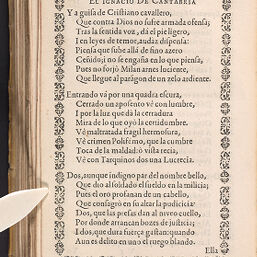 EL IGNACIO DE CANTABRIA
Y a guisa de Cristiano cavallero,
Que contra Dios no sufre armada ofensa;
Tras la sentida voz, dà el pie ligero,
I en leyes de temor, audaz dispensa:
Piensa que sube allà de fino azero
Ceñido; i no se engaña en lo que piensa,
Pues no forjò Milan arnes luciente,
Que llegue al parangon de un zelo ardiente.
Entrando và por una quadra escura,
Cerrado un aposento vè con lumbre,
I por la luz que dà la cerradura
Mira de lo que oyò la certidumbre.
Vè maltratada fragil hermosura,
Vè crimen Polifemo, que la cumbre
Toca de la maldad: ò vista recia,
Vè con Tarquinos dos una Lucrecia.
Dos, aunque indigno par del nombre bello,
Que dio al soldado el sueldo en la milicia;
Pues el oro profanan de un cabello,
Que consagrò en su altar la pudicicia:
Dos, que las presas dan al niveo cuello,
Por donde arrancan bozes de justicia;
I dos, que dura fuerça gastan: quando
Aun es delito en uno el ruego blando.
Ella